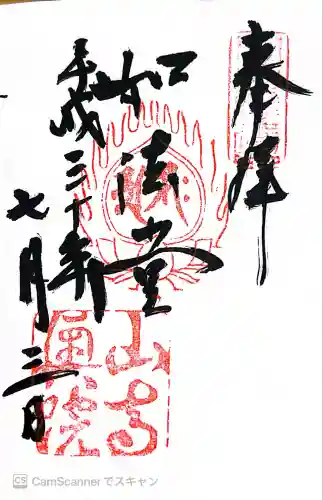 奉拝
如法堂
平成三十年
七月三日
山寺
奥院
CS CamScannerでスキャン